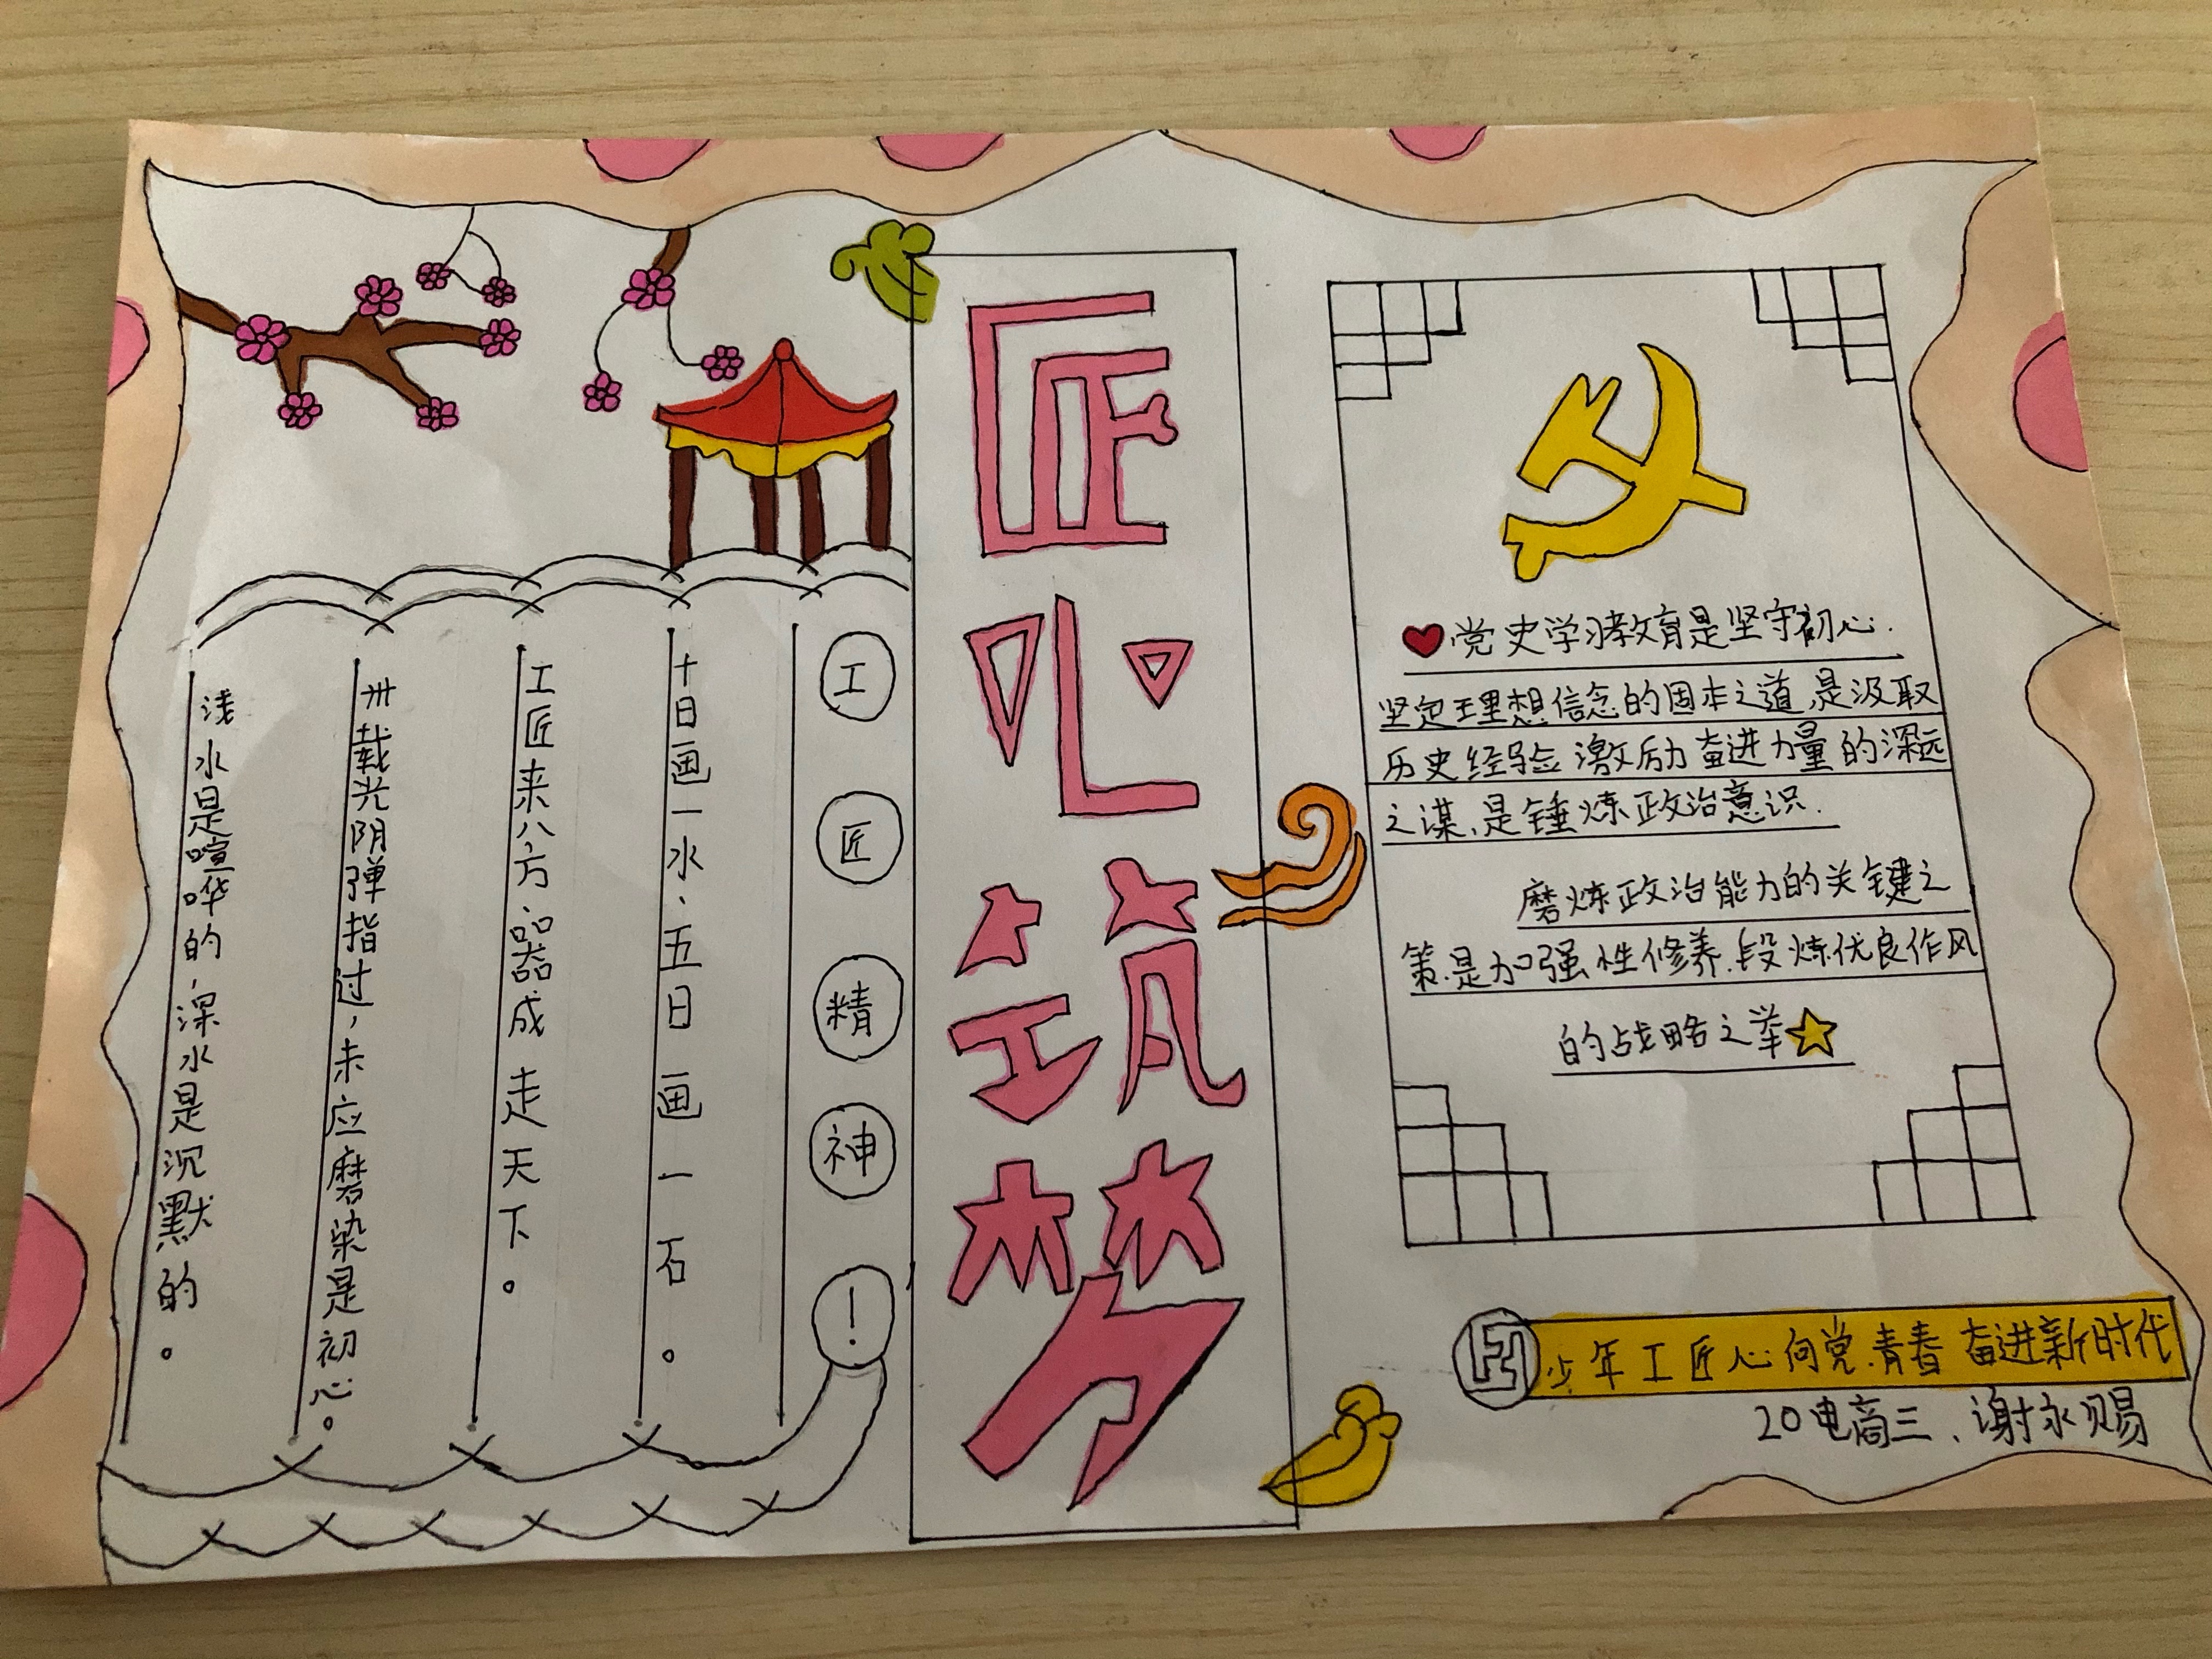 匠心筑梦
工匠精神!
十日画一水.五日画一石。
工匠来八方.器成走天下。
卅载光阴弹指过,未应磨染是初心。
浅水是喧哗的,深水是沉默的。
党史学习教育是坚守初心.
坚定理想信念的固本之道,是汲取
历史经验激励奋进力量的深远
之谋,是锤炼政治意识.
磨炼政治能力的关键之
策.是加强性修养.段炼优良作风
的战略之举
少年工匠心向党.青春奋进新时代
20电商三、谢永赐